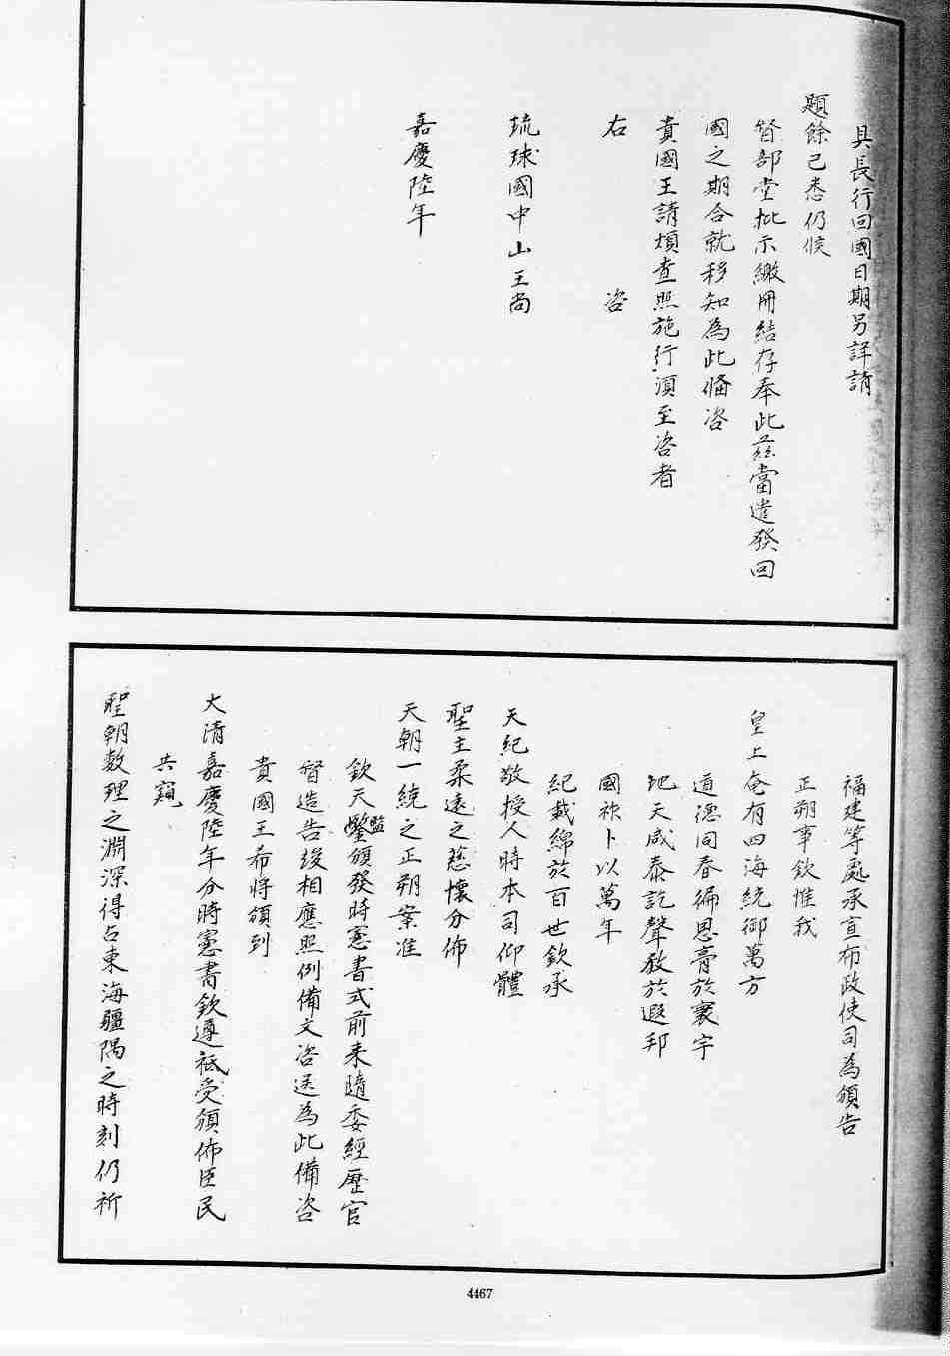 具長行回國日期另詳請
題餘已悉仍候
督部堂批示繳冊結存奉此茲當遣發回
國之期合就移知為此備咨
貴國王請煩查照施行須至咨者
右　咨
琉球國中山王尚
嘉慶陸年
福建等處承宣布政使司為頒告
正朔事欽惟我
皇上奄有四海統御萬方
道德同春徧恩膏於寰宇
地天咸泰訖聲教於遐邦
國祚卜以萬年
紀載綿於百世欽承
天紀敬授人時本司仰體
聖主柔遠之慈懷分佈
天朝一統之正朔案准
欽天監頒發時憲書式前來隨委經歷官
督造告竣相應照例備文咨送為此備咨
貴國王希將頒到
大清嘉慶陸年分時憲書欽遵祗受頒佈臣民
共窺
聖朝數理之淵深得占東海疆隅之時刻仍祈
4467